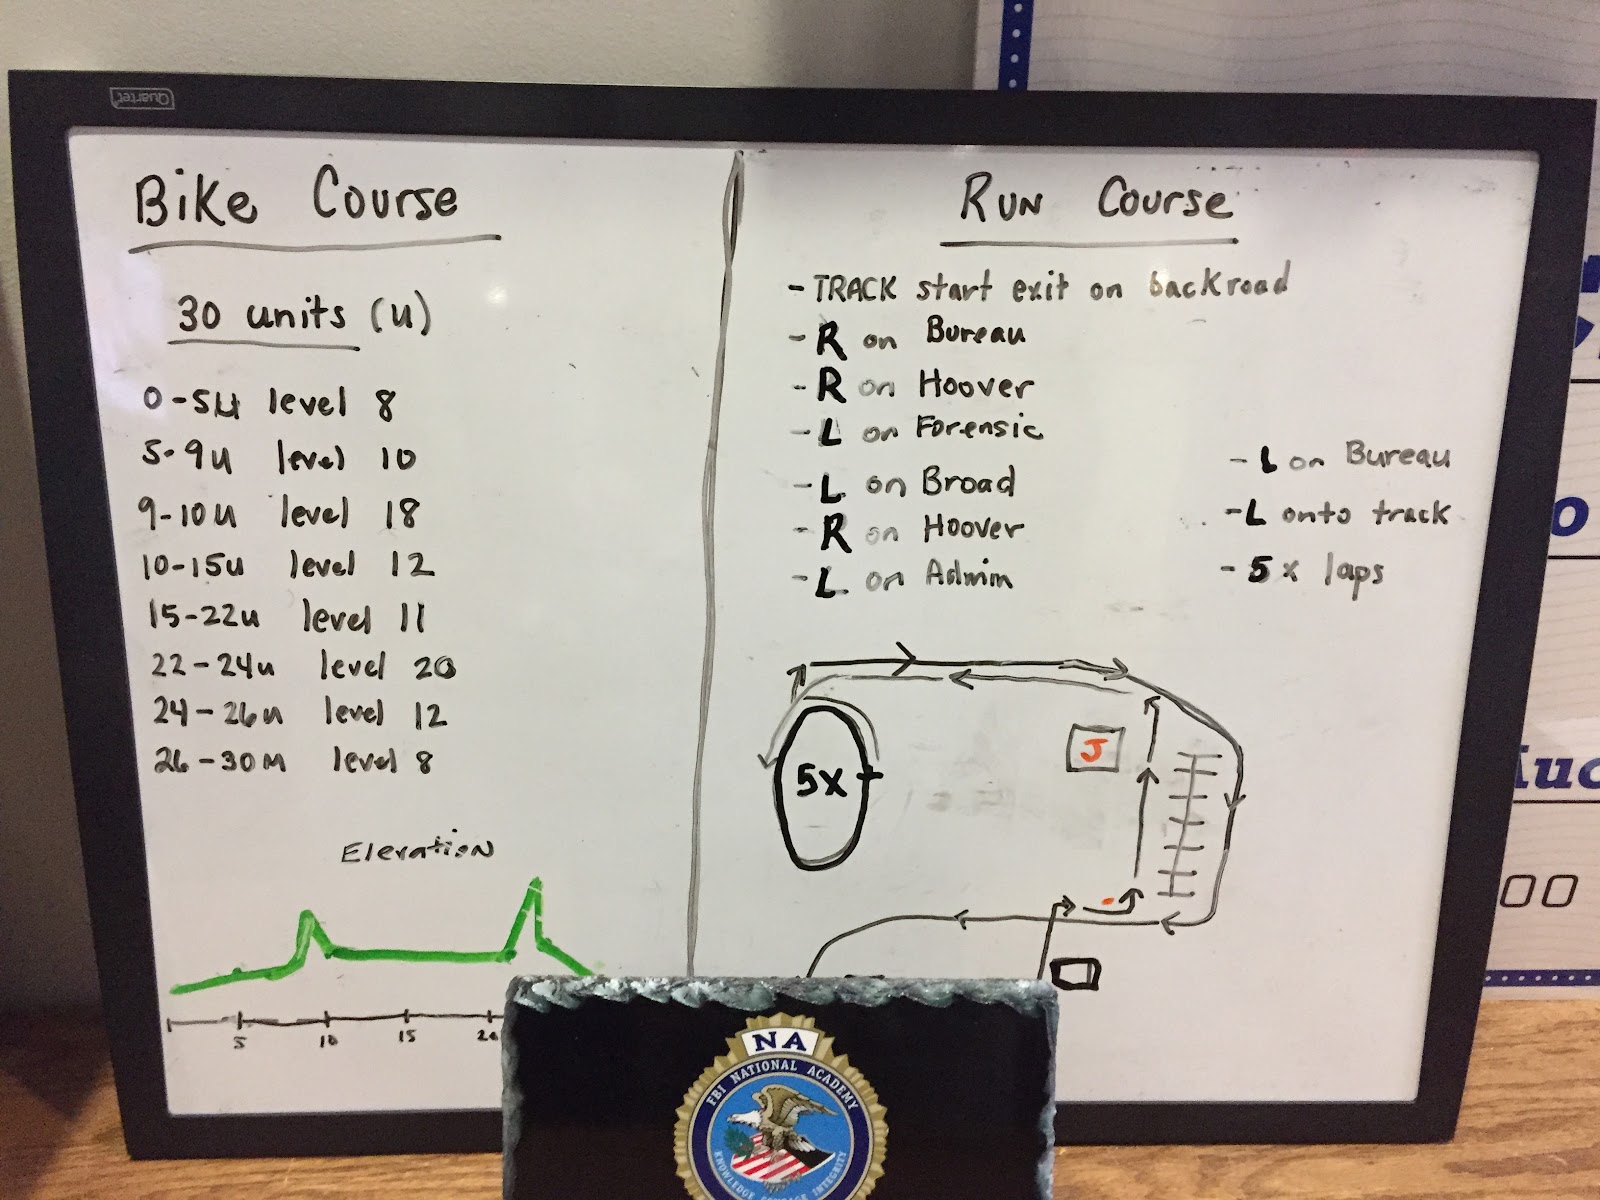 Quartet
Bike Course
30 units (u)
0-5u level 8
5-9u level 10
9-10u level 18
10-15u level 12
15-22u level 11
22-24u level 20
24-26u level 12
26-30u level 8
Elevation
5 10 15 20
Run Course
-TRACK start exit on backroad
-R on Bureau
-R on Hoover
-L on Forensic
-L on Broad
-R on Hoover
-L on Admin
-L on Bureau
-L onto track
-5x laps
5x
J
NA
FBI NATIONAL ACADEMY
KNOWLEDGE INTEGRITY
00